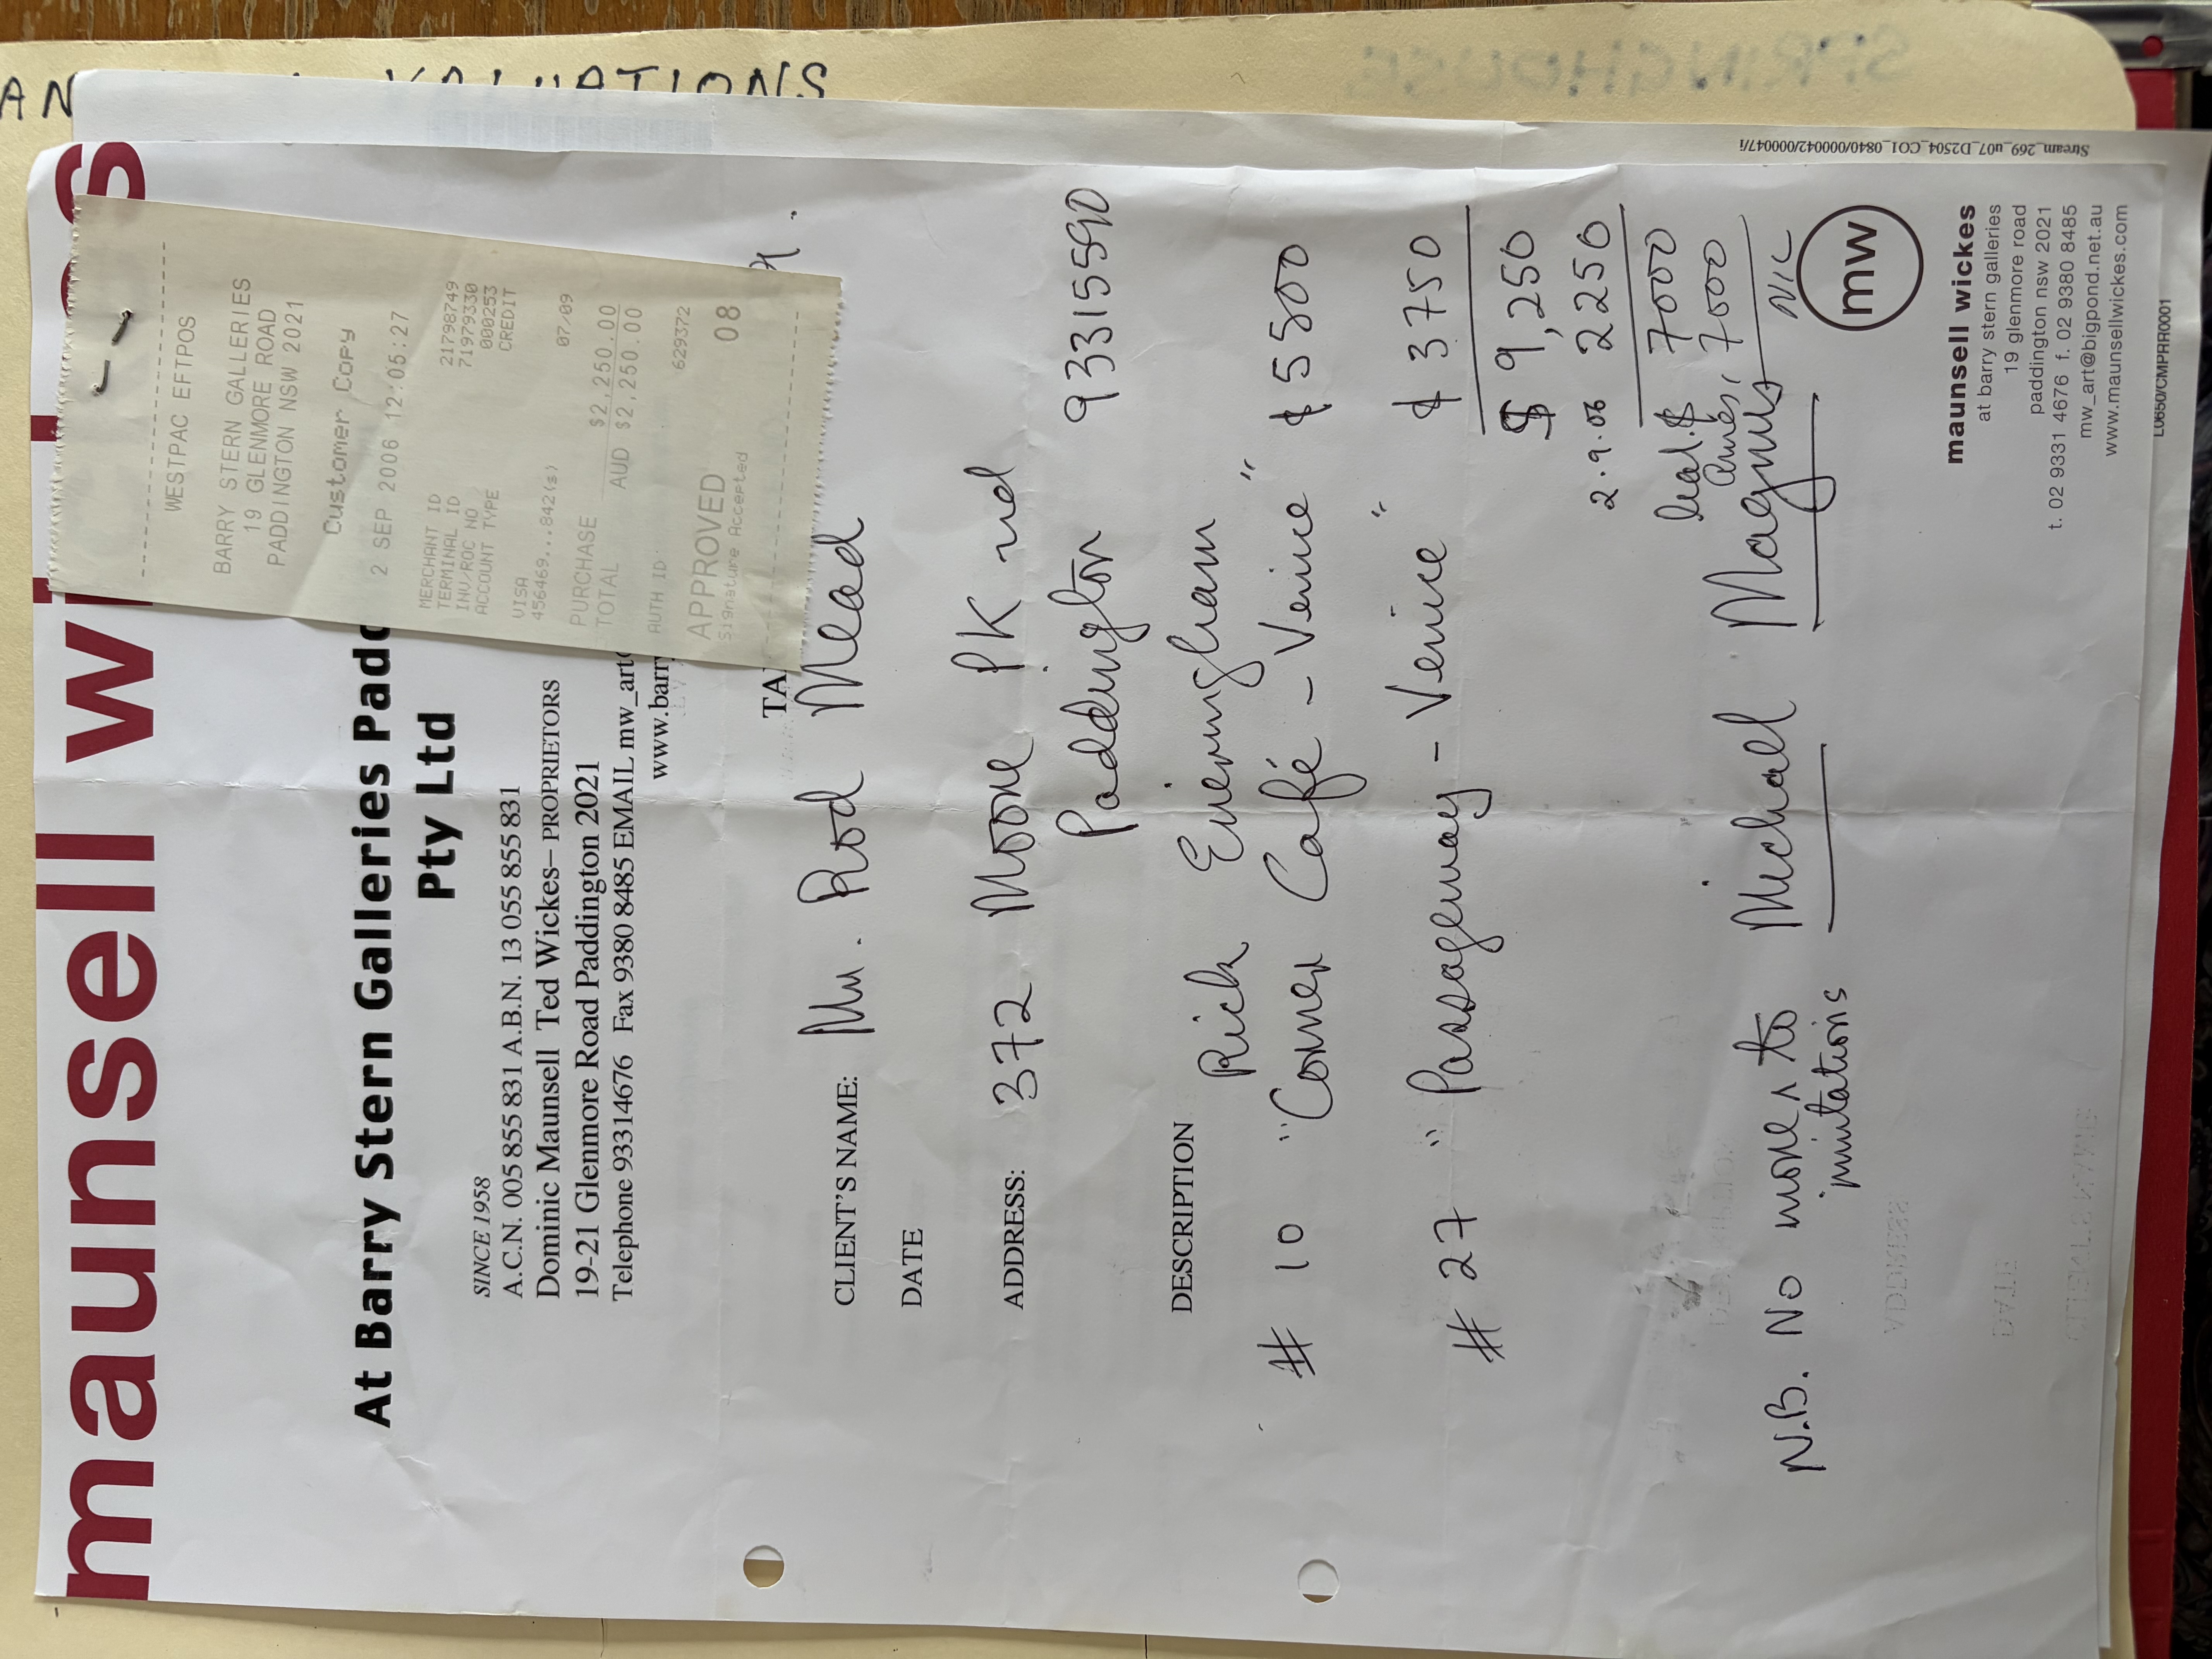 VALUATIONS
SPRINGHOUSE
maunsell
At Barry Stern Galleries
Pty Ltd
SINCE 1958
A.C.N. 005 855 831 A.B.N. 13 055 855 831
Dominic Maunsell Ted Wickes– PROPRIETORS
19-21 Glenmore Road Paddington 2021
Telephone 93314676 Fax 9380 8485 EMAIL
WESTPAC EFTPOS
BARRY STERN GALLERIES
19 GLENMORE ROAD
PADDINGTON NSW 2021
Customer Copy
2 SEP 2006 12:05:27
MERCHANT ID 21798749
TERMINAL ID 71979330
INV/ROC NO 000253
ACCOUNT TYPE CREDIT
VISA
456469...842(s) 07/09
PURCHASE $2,250.00
TOTAL AUD $2,250.00
AUTH ID 629372
APPROVED 08
Signature Accepted
CLIENT'S NAME: Mr. Rod Mead
DATE
ADDRESS: 372 Moore PK rd
Paddington 93315590
DESCRIPTION Rich Evieringham
# 10 "Corner Café - Venice" $5500
# 27 "Passageway - Venice" $3750
$ 9,250
2.9.06 2250
bal.$ 7000
Amex, 7000
NIL
N.B. No more to Michael Magnus
imitations
mw
maunsell wickes
at barry stern galleries
19 glenmore road
paddington nsw 2021
t. 02 9331 4676 f. 02 9380 8485
mw_art@bigpond.net.au
www.maunsellwickes.com
Stream_269_u07_D2504_CO1_0840/000042/000047/i
L0650/CMPRR0001